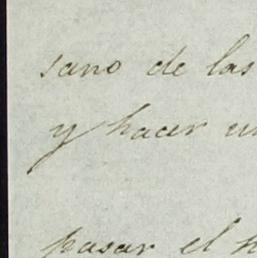 sano de las
y hacer un
pasar el h